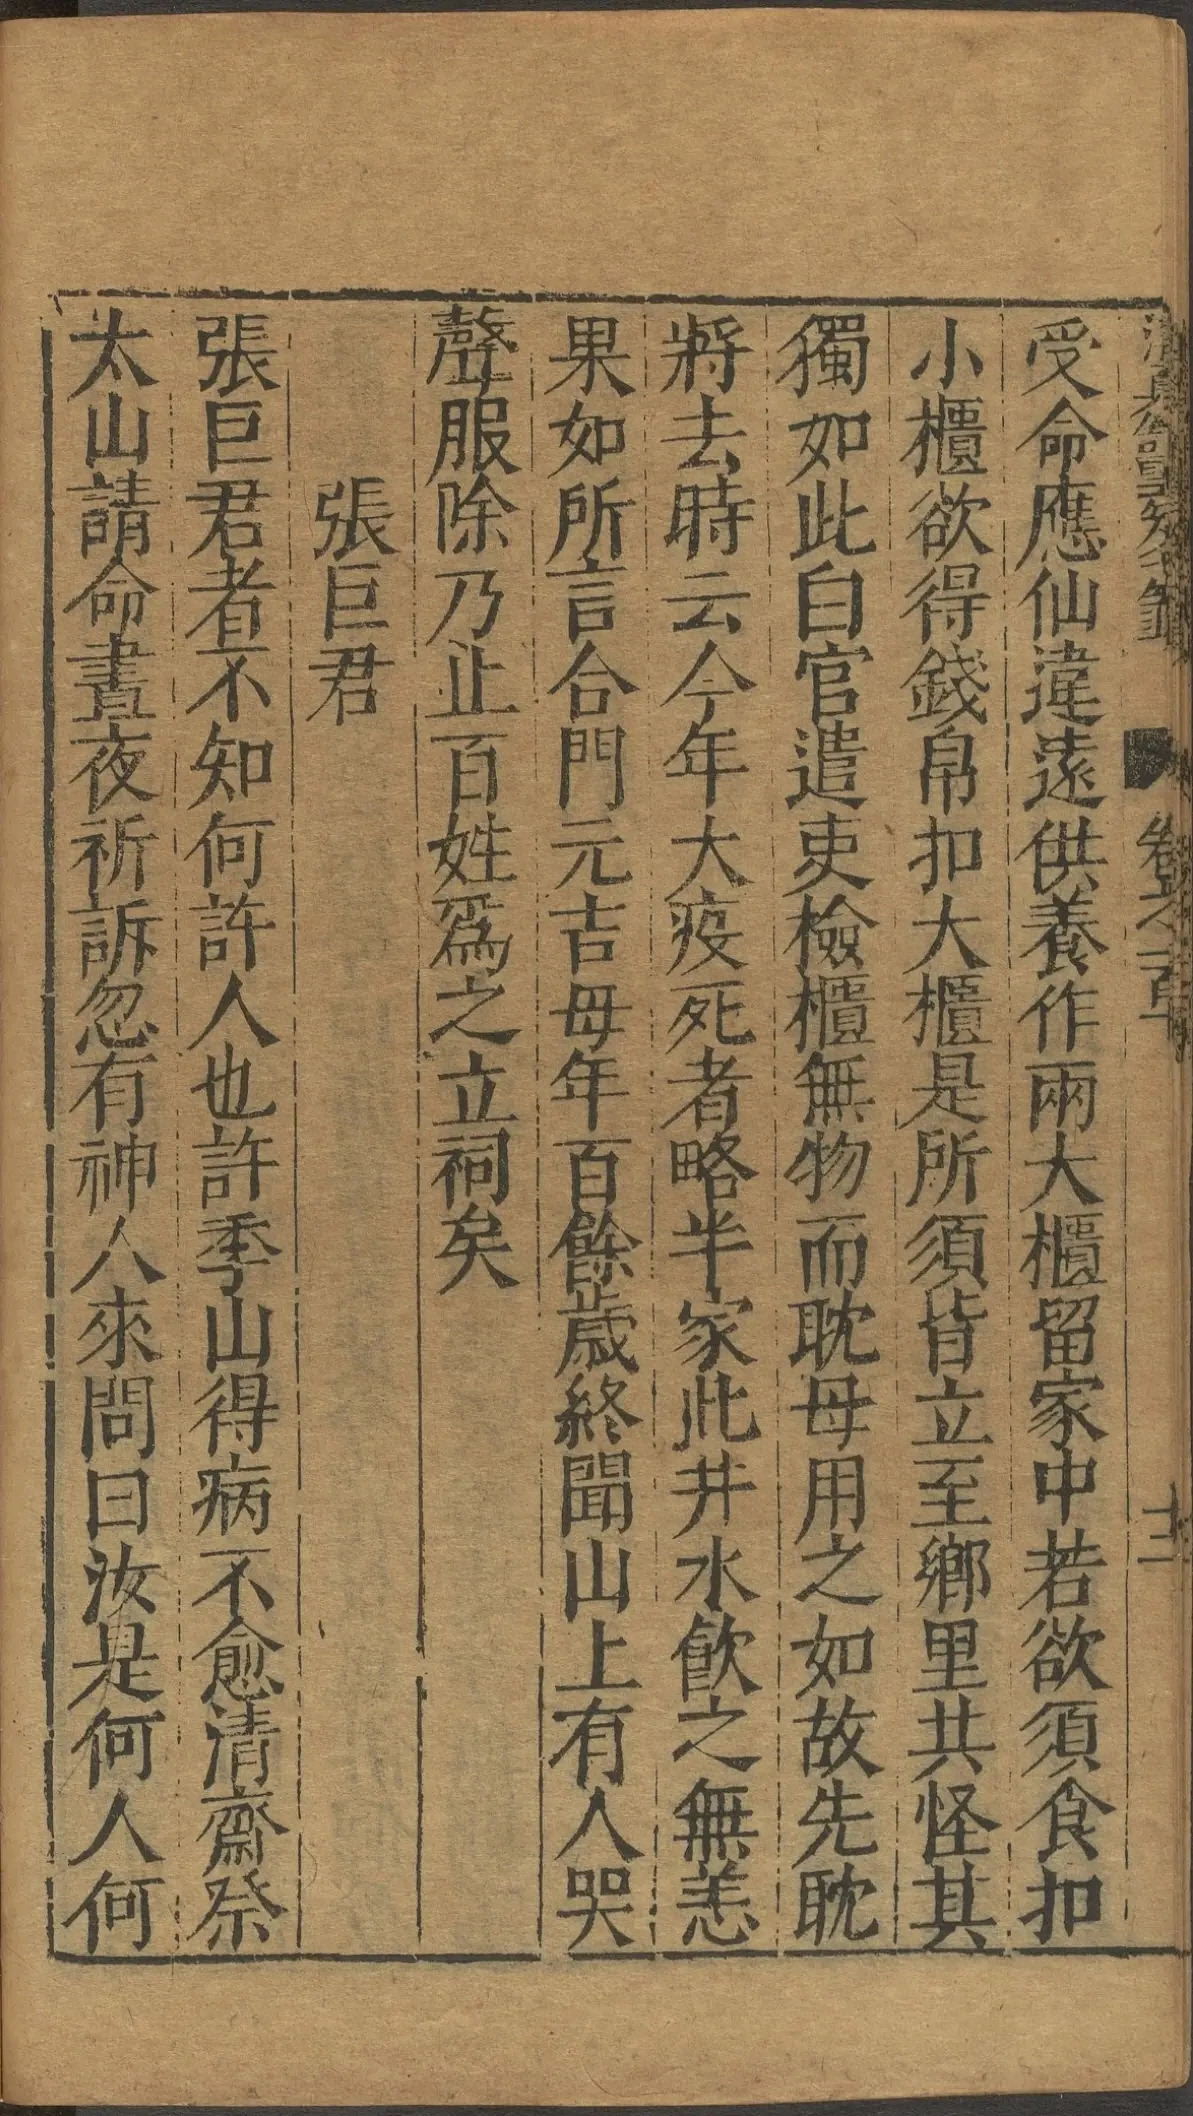 受命應仙違遠供養作兩大櫃留家中若欲須食扣
小櫃欲得錢帛扣大櫃是所須皆立至鄉里共怪其
獨如此白官遣吏檢櫃無物而耽母用之如故先耽
將去時云今年大疫死者略半家此井水飲之無恙
果如所言合門元吉母年百餘歲終聞山上有人哭
聲服除乃止百姓爲之立祠矣
張巨君
張巨君者不知何許人也許季山得病不愈清齋祭
太山請命晝夜祈訴忽有神人來問曰汝是何人何